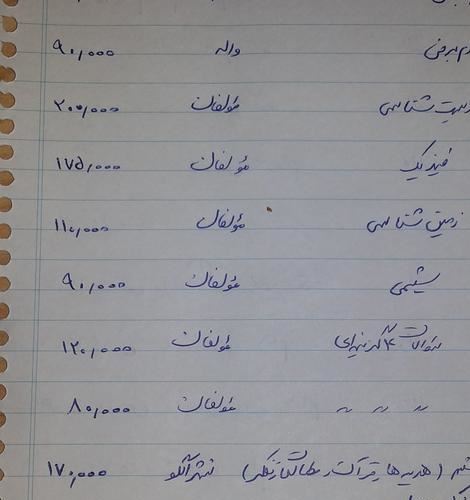 واله ۹۰,۰۰۰
زیست شناسی مؤلفان ۲۰۰,۰۰۰
فیزیک مؤلفان ۱۷۵,۰۰۰
زمین شناسی مؤلفان ۱۱۰,۰۰۰
شیمی مؤلفان ۹۰,۰۰۰
سوالات ۴ گزینه‌ای مؤلفان ۱۲۰,۰۰۰
〃 〃 〃 مؤلفان ۸۰,۰۰۰
(هدیه ها, قرآن, نشر الگو ۱۷۰,۰۰۰